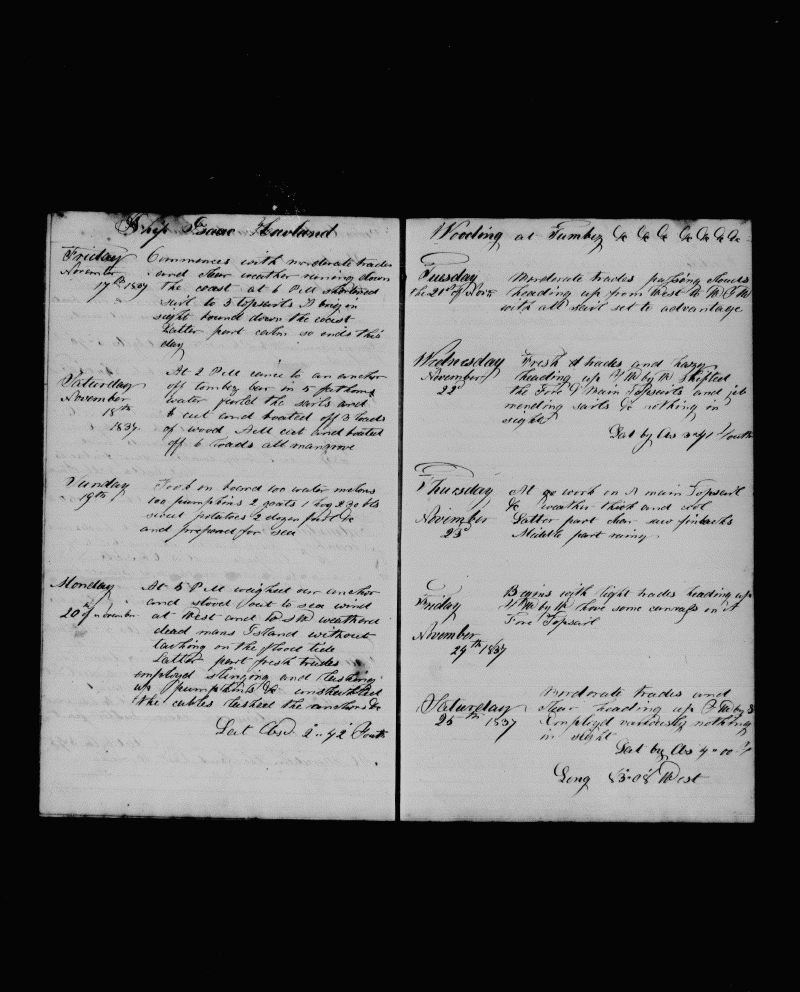 Ship Isaac Howland
Friday
November
17th 1837
Commences with morderate trades
and clear weather runing down
the coast at 6 PM shortened
sail to 3 topsails A brig in
sight bound down the coast
Latter part calm so ends this
day
Saturday
November
18th
1837
At 2 PM came to an anchor
off tombez bar in 5 fathoms
water furld the sails and
cut and boated off 3 loads
of wood AM cut and boated
off 6 loads all mangrove
Sunday
19th
Took on board 100 water melons
100 pumpkins 2 goats 1 hog 2 bbls
sweet potatoes 2 dozen fowl &c
and prepared for sea
Monday
20th of november
At 5 PM weighed our anchor
and stood out to sea wind
at West and to SW weatherd
dead mans Island without
tacking on the flood tide
Latter part fresh trades
employd slinging and lashing
up pumpkins &c unshackled
the cables lashed the anchors &c
Lat Obsd 2"42 South
Wooding at Tumbez &c &c &c &c &c &c
Tuesday
the 21st of Nov
Morderate trades passing clouds
heading up from West to W S W
with all sail set to advantage
Wednesday
November
22d
Fresh trades and hazy
heading up SW by W Shifted
the Fore & Main Topsails and jib
mending sails &c nothing in
sight
Lat by Obs 3"41 South
Thursday
November
23d
At work on A main Topsail
&c weather thick and cool
Latter part clear saw finbacks
Middle part rainy
Friday
November
24th 1837
Begins with light trades heading up
SW by W hove some canvass on A
Fore Topsail
Saturday
25th 1837
Morderate trades and
clear heading up SW by S
Employd variously nothing
in sight
Lat by Obs 4"00 S
Long 83"08 West